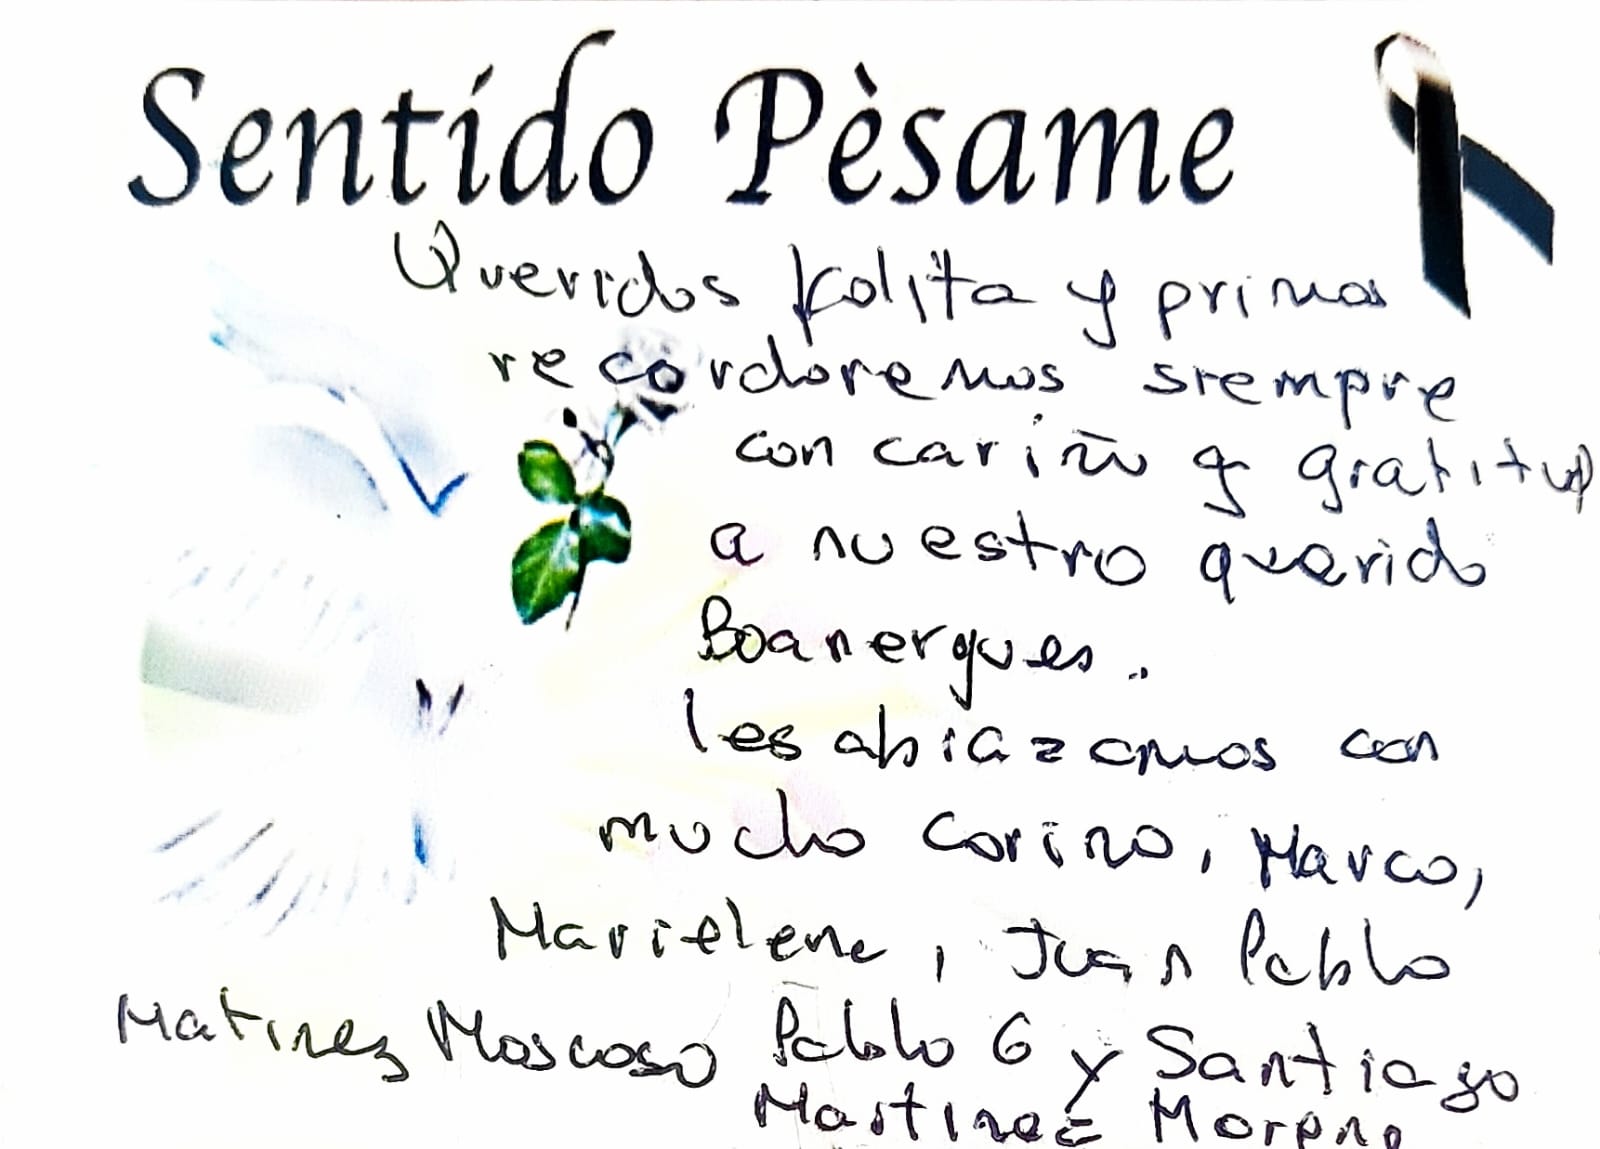 Sentido Pèsame
Queridos Kolita y primos
recordaremos siempre
con cariño y gratitud
a nuestro querido
Boanergues.
les abrazamos con
mucho cariño, Marco,
Marielene, Juan Pablo
Matinez Moscoso Pablo G y Santiago
Martinez Moreno